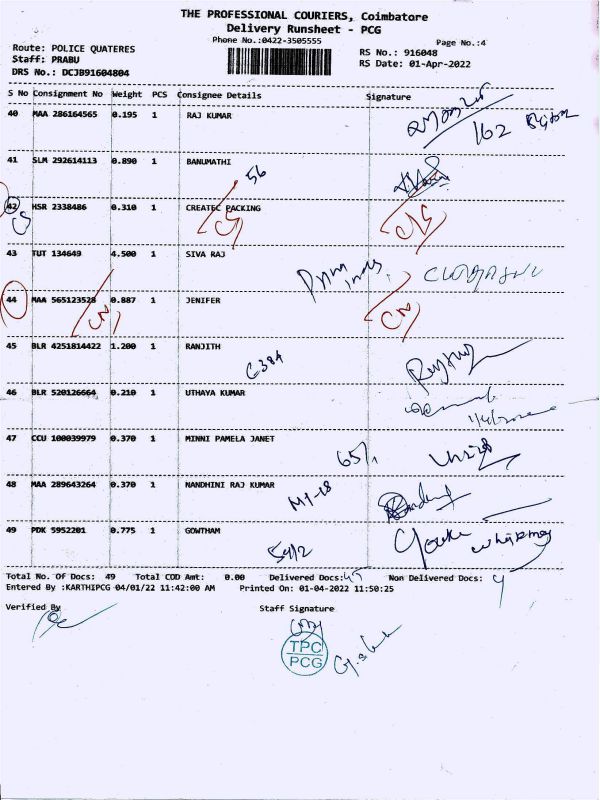 THE PROFESSIONAL COURIERS, Coimbatore
Delivery Runsheet - PCG
Phone No.:0422-3505555
Page No.:4
Route: POLICE QUATERES
Staff: PRABU
DRS No.: DCJB91604804
RS No.: 916048
RS Date: 01-Apr-2022
S No Consignment No Weight PCS Consignee Details Signature
40 MAA 286164565 0.195 1 RAJ KUMAR
162
41 SLM 292614113 0.890 1 BANUMATHI
56
42 HSR 2338486 0.310 1 CREATEC PACKING
CS
43 TUT 134649 4.500 1 SIVA RAJ
44 MAA 565123528 0.887 1 JENIFER
CN CN
45 BLR 4251814422 1.200 1 RANJITH
G38A
46 BLR 520126664 0.210 1 UTHAYA KUMAR
47 CCU 100039979 0.370 1 MINNI PAMELA JANET
65/1
48 MAA 289643264 0.370 1 NANDHINI RAJ KUMAR
M1-18
49 PDK 5952201 0.775 1 GOWTHAM
54/2
Total No. Of Docs: 49 Total COD Amt: 0.00 Delivered Docs: 45 Non Delivered Docs: 4
Entered By :KARTHIPCG 04/01/22 11:42:00 AM Printed On: 01-04-2022 11:50:25
Verified By
Staff Signature
TPC
PCG